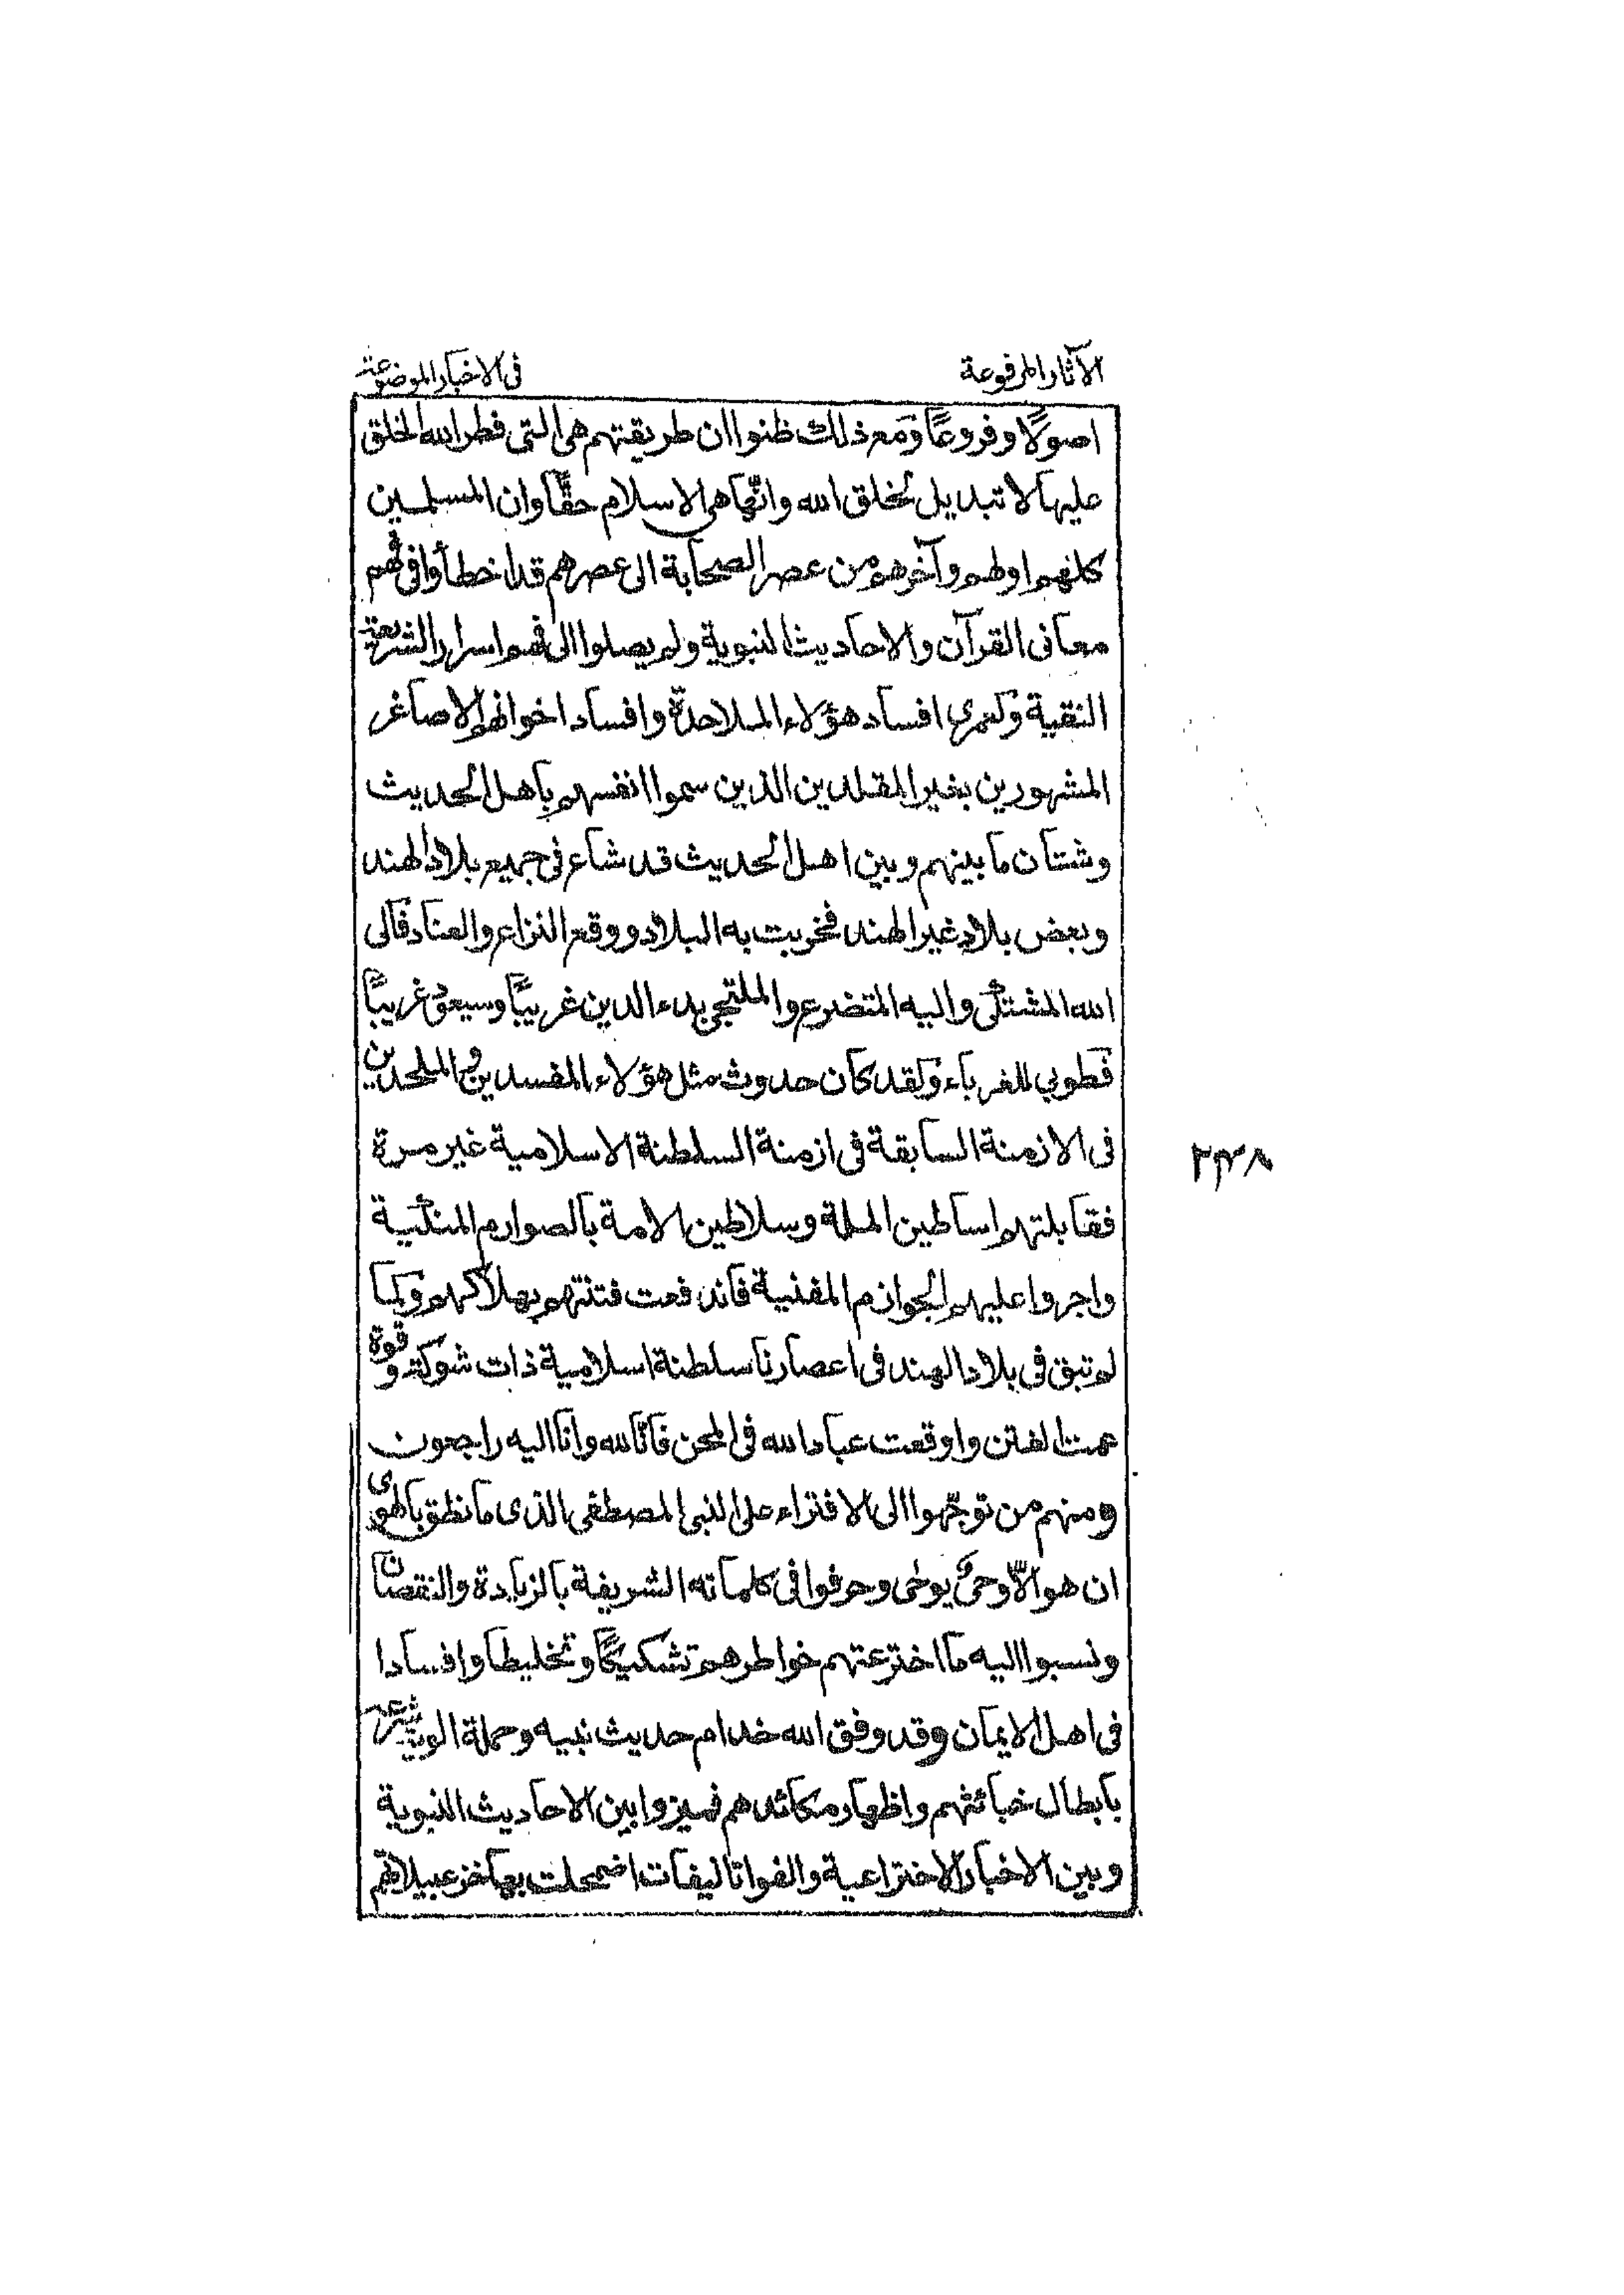 الآثار المرفوعة
فی الاخبار الموضوعة
اصولًا وفروعًا ومع ذلك ظنوا ان طريقتهم هی التی فطر الله الخلق
عليها لا تبديل لخلق الله وانّها هی الاسلام حقًّا وان المسلمين
كلهم اولهم وآخرهم من عصر الصحابة الی عصرهم قد اخطأوا فی فهم
معانی القرآن والاحاديث النبوية ولم يصلوا الی فهم اسرار الشريعة
النقية ولعمری افساد هؤلاء الملاحدة وافساد اخوانهم الاصاغر
المشهورين بغير المقلدين الذين سموا انفسهم باهل الحديث
وشتان ما بينهم وبين اهل الحديث قد شاع فی جميع بلاد الهند
وبعض بلاد غير الهند فخربت به البلاد ووقع النزاع والعناد فالی
الله المشتكی واليه المتضرع والملتجی بدء الدين غريبًا وسيعود غريبًا
فطوبی للغرباء ولقد كان حدوث مثل هؤلاء المفسدين والملحدين
فی الازمنة السابقة فی ازمنة السلطنة الاسلامية غير مرة
فقابلتهم اساطين الملة وسلاطين الامة بالصوارم المنكية
واجروا عليهم الجوازم المفنية فاندفعت فتنتهم بهلاكهم ولما
لم تبق فی بلاد الهند فی اعصارنا سلطنة اسلامية ذات شوكة وقوة
عمت الفتن واوقعت عباد الله فی المحن فانا لله وانا اليه راجعون
ومنهم من توجّهوا الی الافتراء علی النبی المصطفی الذی ما نطق بالهوی
ان هو الّا وحیٌ يوحٰی وحرفوا فی كلماته الشريفة بالزيادة والنقصان
ونسبوا اليه ما اخترعتهم خواطرهم تشكيكًا وتخليطا وافسادا
فی اهل الايمان وقد وفق الله خدام حديث نبيه وحملة الوية شرعه
بابطال خبائثهم واظهار مكائدهم فميزوا بين الاحاديث النبوية
وبين الاخبار الاختراعية والفوا تاليفات اضمحلت بها خزعبيلاتهم
۲۴۸